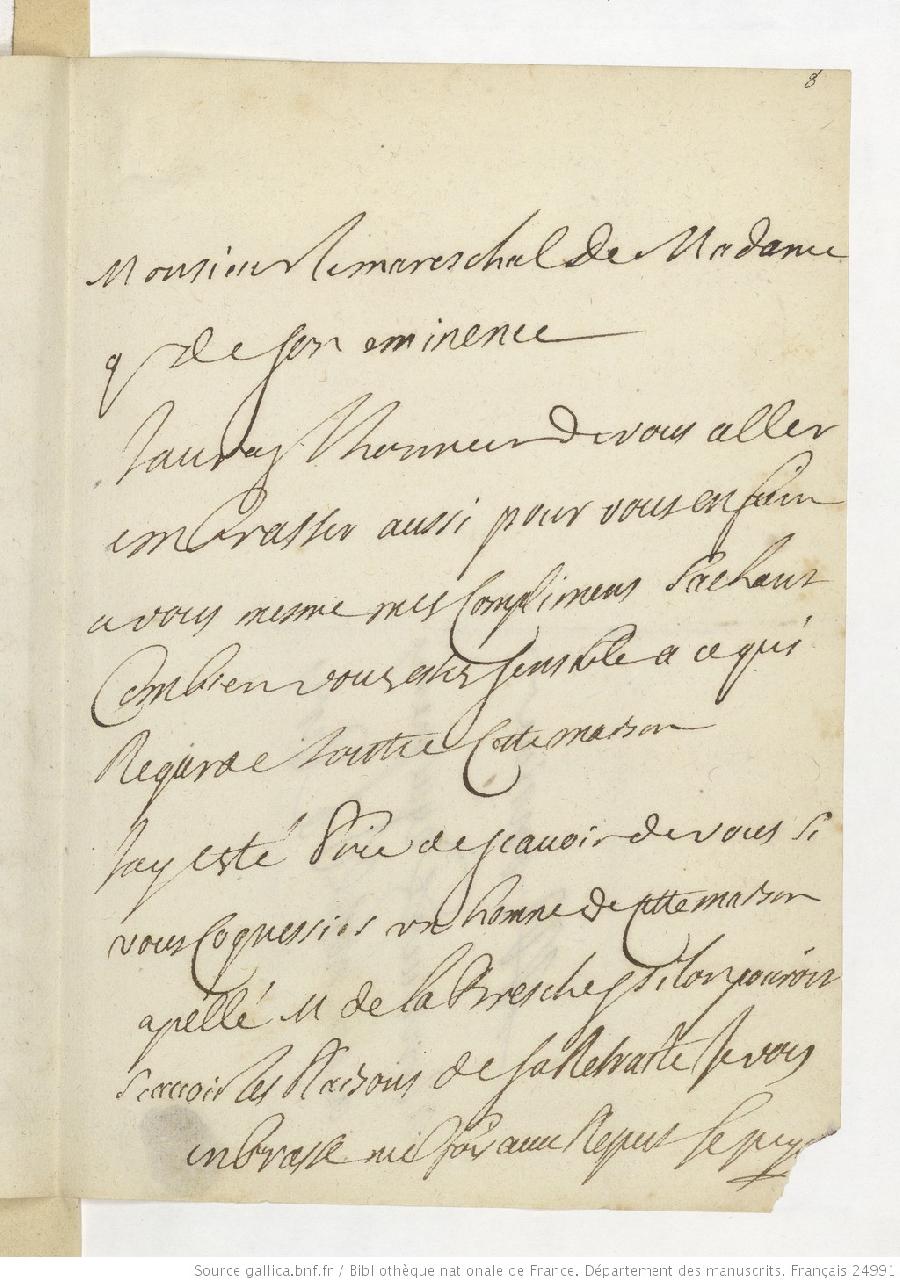 8
Monsieur le mareschal de Madame
q de son eminence
Jauray lhonneur de vous aller
embrasser aussi pour vous en faire
a vous mesme mes Complimens Sachant
Combien vous estes sensible a ce qui
Regarde toutte Cette maison
Jay esté Prié de scavoir de vous si
vous Cognessies un homme de cette maison
apéllé M de la Bresche q si lon pouroit
scavoir les Raisons de sa Retraitte Je vous
enbrasse mil fois avec Respect
Source gallica.bnf.fr / Bibliothèque nationale de France. Département des manuscrits. Français 24991